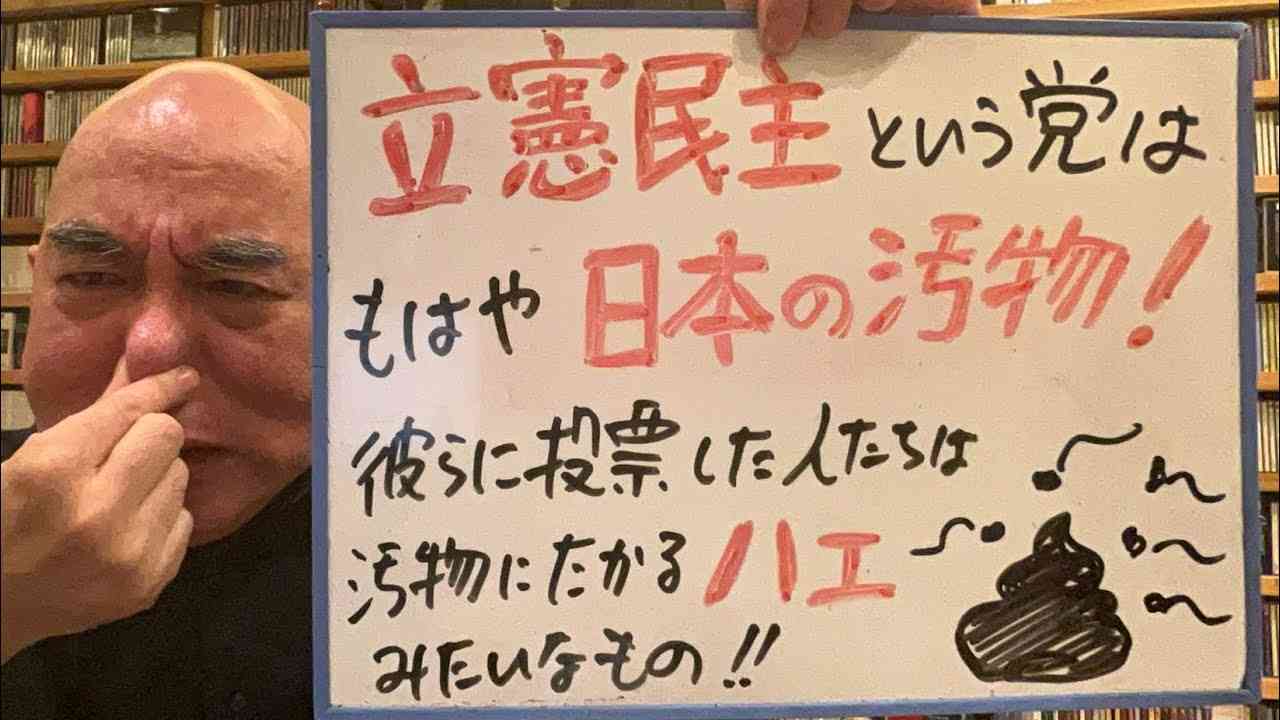 立憲民主という党は
もはや日本の汚物!
彼らに投票した人たちは
汚物にたかるハエ
みたいなもの!!